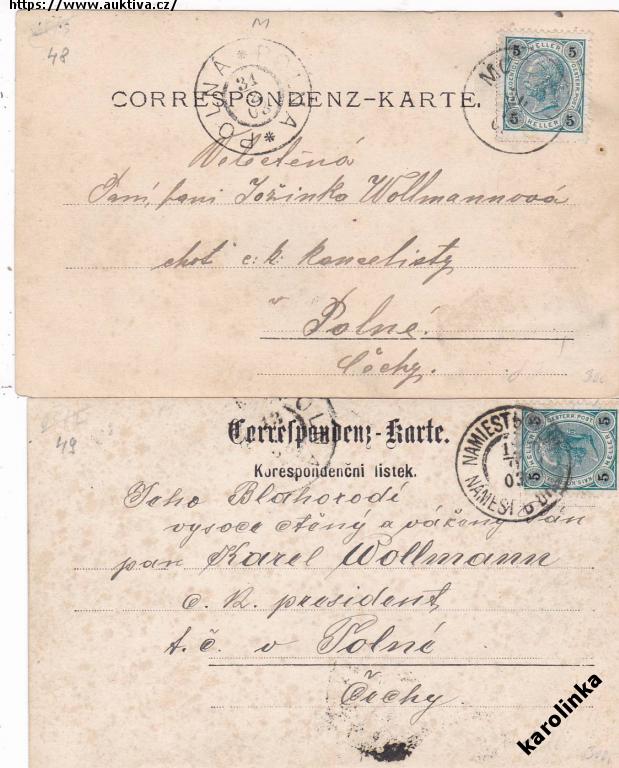 https://www.auktiva.cz/
48
M
POLNA * POLNÁ *
31
03
CORRESPONDENZ-KARTE.
5 HELLER 5
Veletěná
Paní, paní Jožinka Wollmannová
chot c. k. kancelisty
v
Polné.
Čechy.
300
49
Correspondenz-Karte.
Korespondenční lístek.
NÁMĚŠŤ
03
5
Jeho Blahorodí
vysoce ctěný a vážený Pan
pan Karel Wollmann
c. k. president
t. č. v Polné
Čechy
karolinka